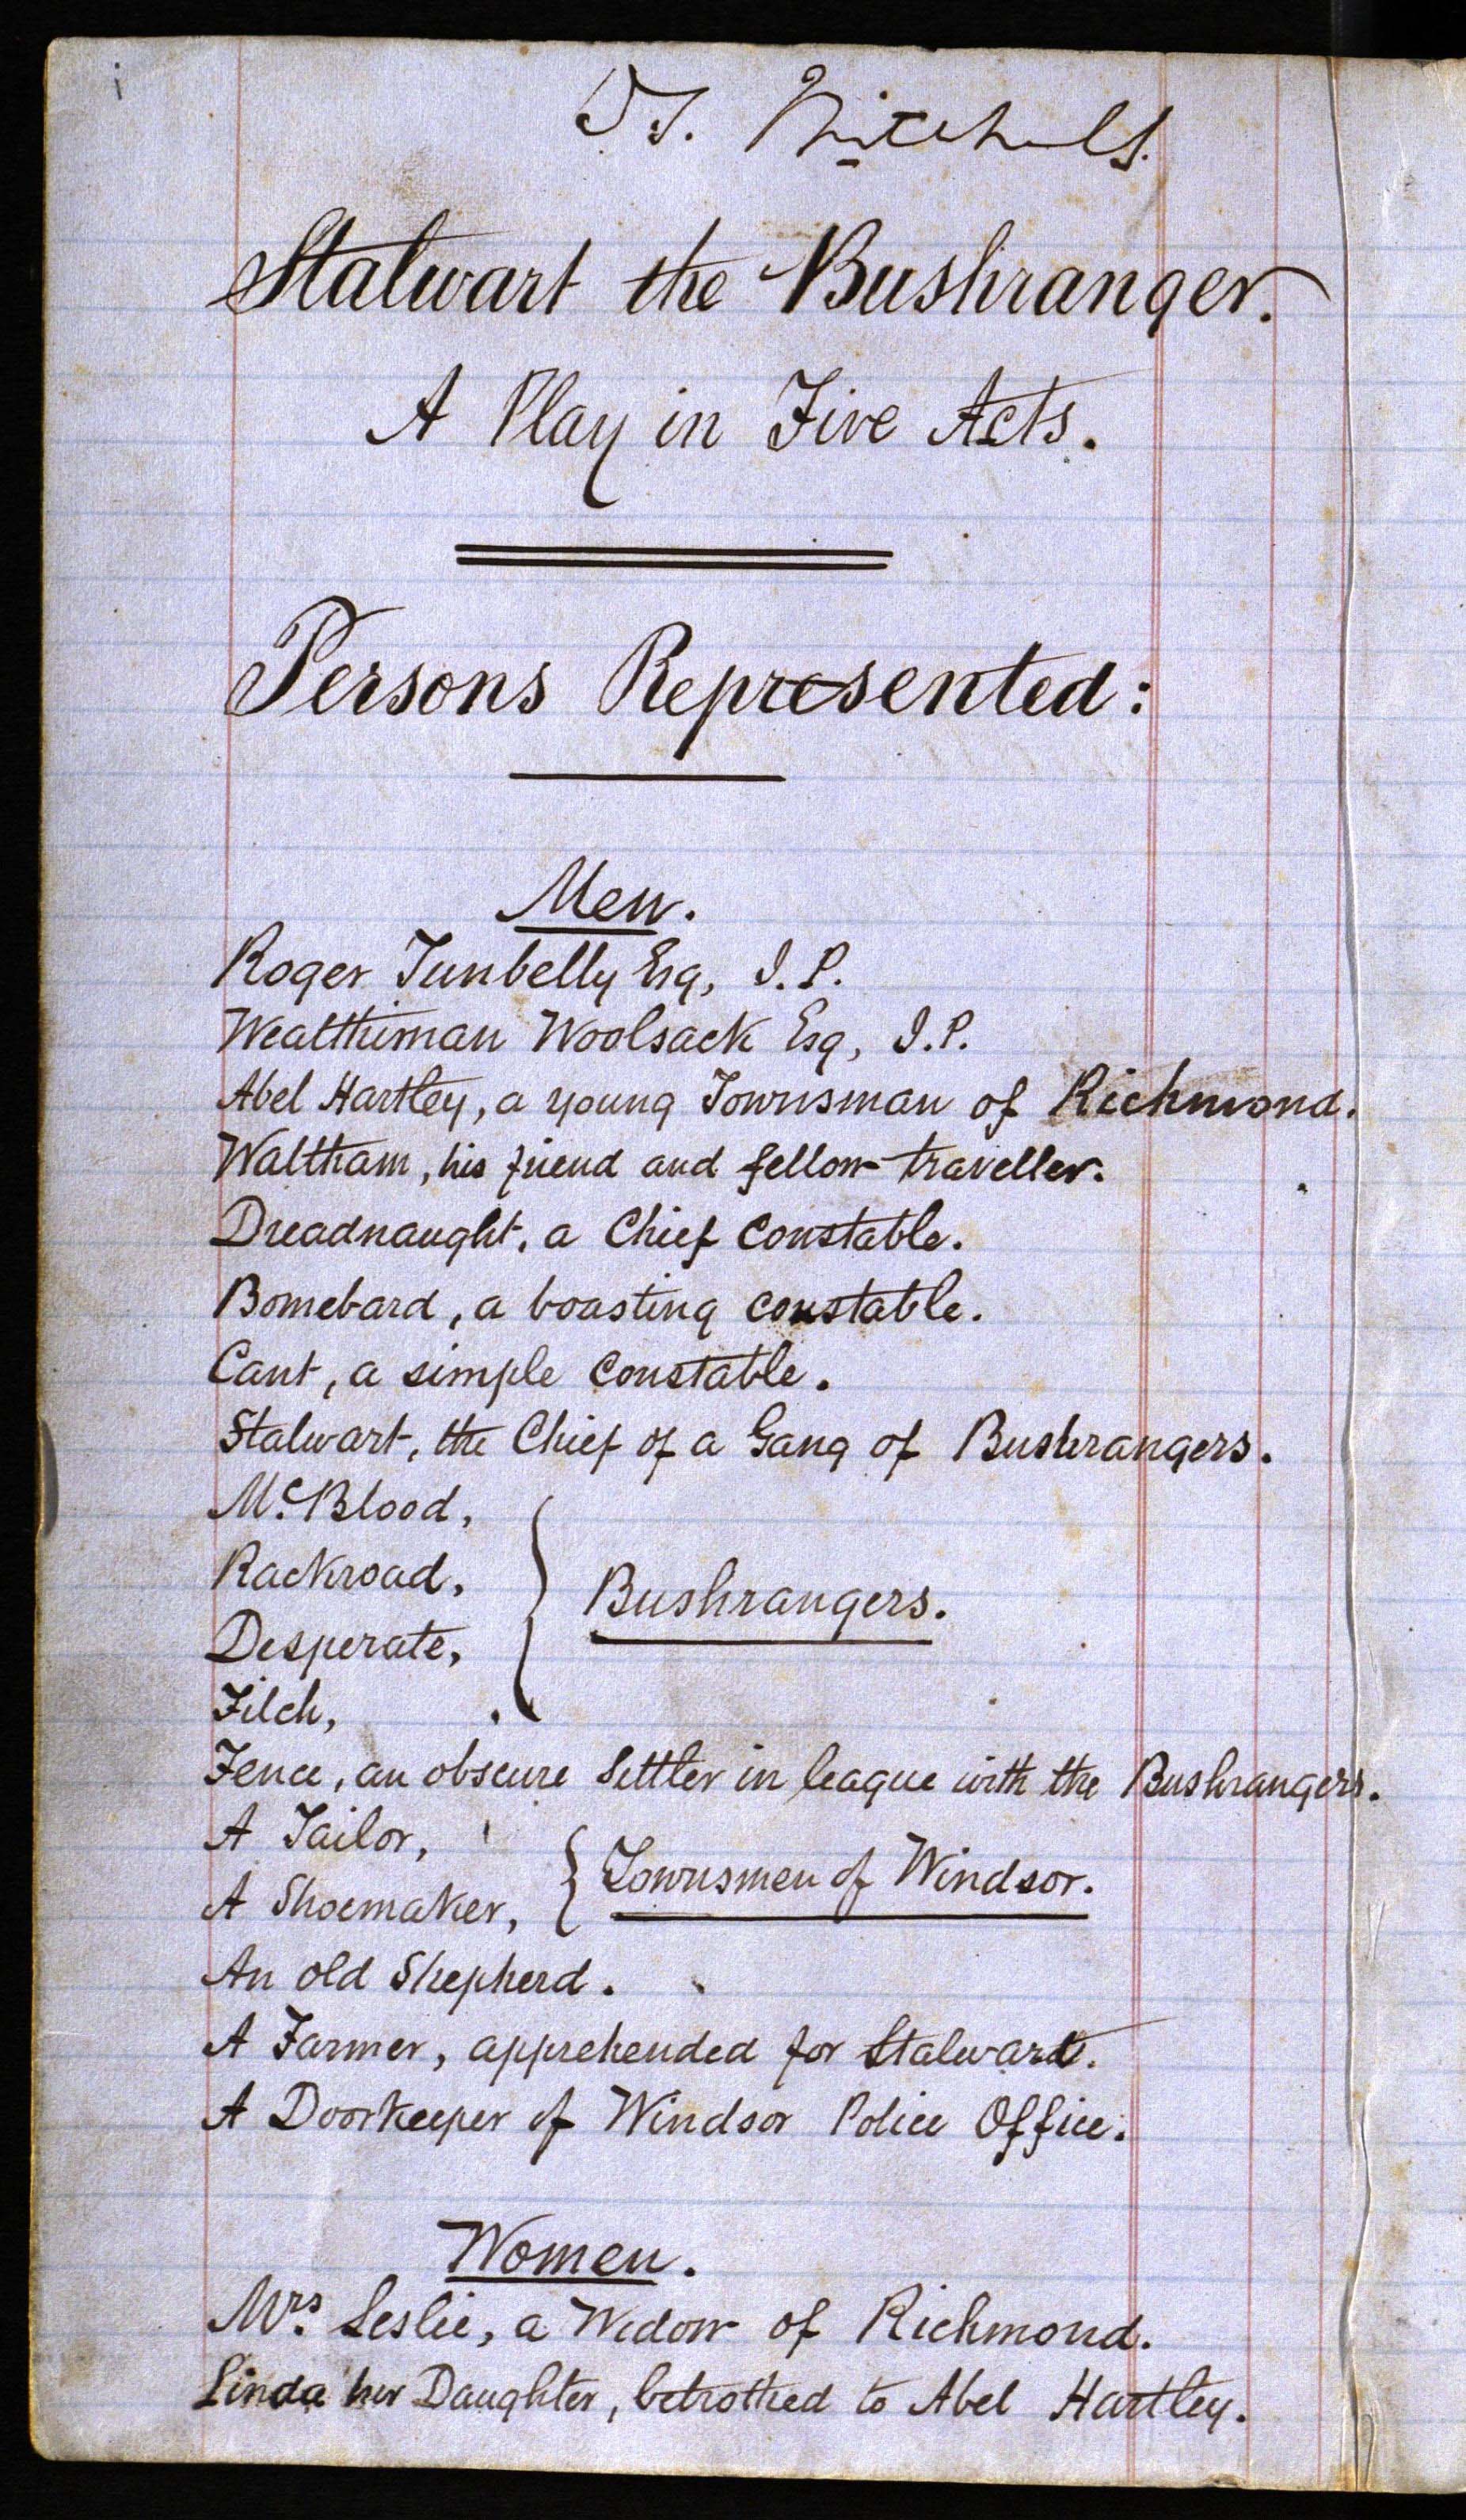 i
Stalwart the Bushranger.
A Play in Five Acts.
Persons Represented:
Men.
Roger Tunbelly Esq, J. P.
Wealthiman Woolsack Esq, J. P.
Abel Hartley, a young Townsman of Richmond.
Waltham, his friend and fellow-traveller.
Dreadnaught, a Chief Constable.
Bomebard, a boasting constable.
Cant, a simple Constable.
Stalwart, the Chief of a Gang of Bushrangers.
Mc. Blood,
Rackroad,
Bushrangers.
Desperate,
Filch,
Fence, an obscure Settler in league with the Bushrangers.
A Tailor,
Townsmen of Windsor.
A Shoemaker,
An old Shepherd.
A Farmer, apprehended for Stalwart.
A Doorkeeper of Windsor Police Office.
Women.
Mrs. Leslie, a Widow of Richmond.
Linda her Daughter, betrothed to Abel Hartley.